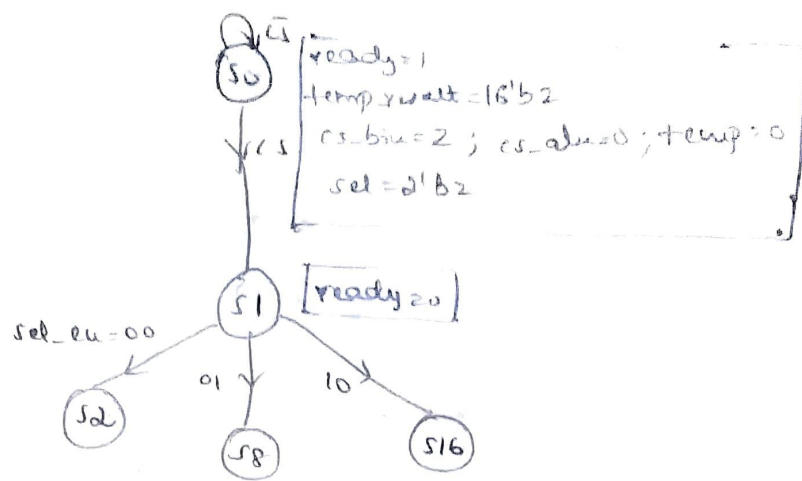 c̅s̅
S0
ready=1
temp_result=16'bz
cs_biu=z ; cs_alu=0 ; temp=0
sel=2'bz
cs
S1
ready=0
sel_eu=00
01
10
S2
S8
S16